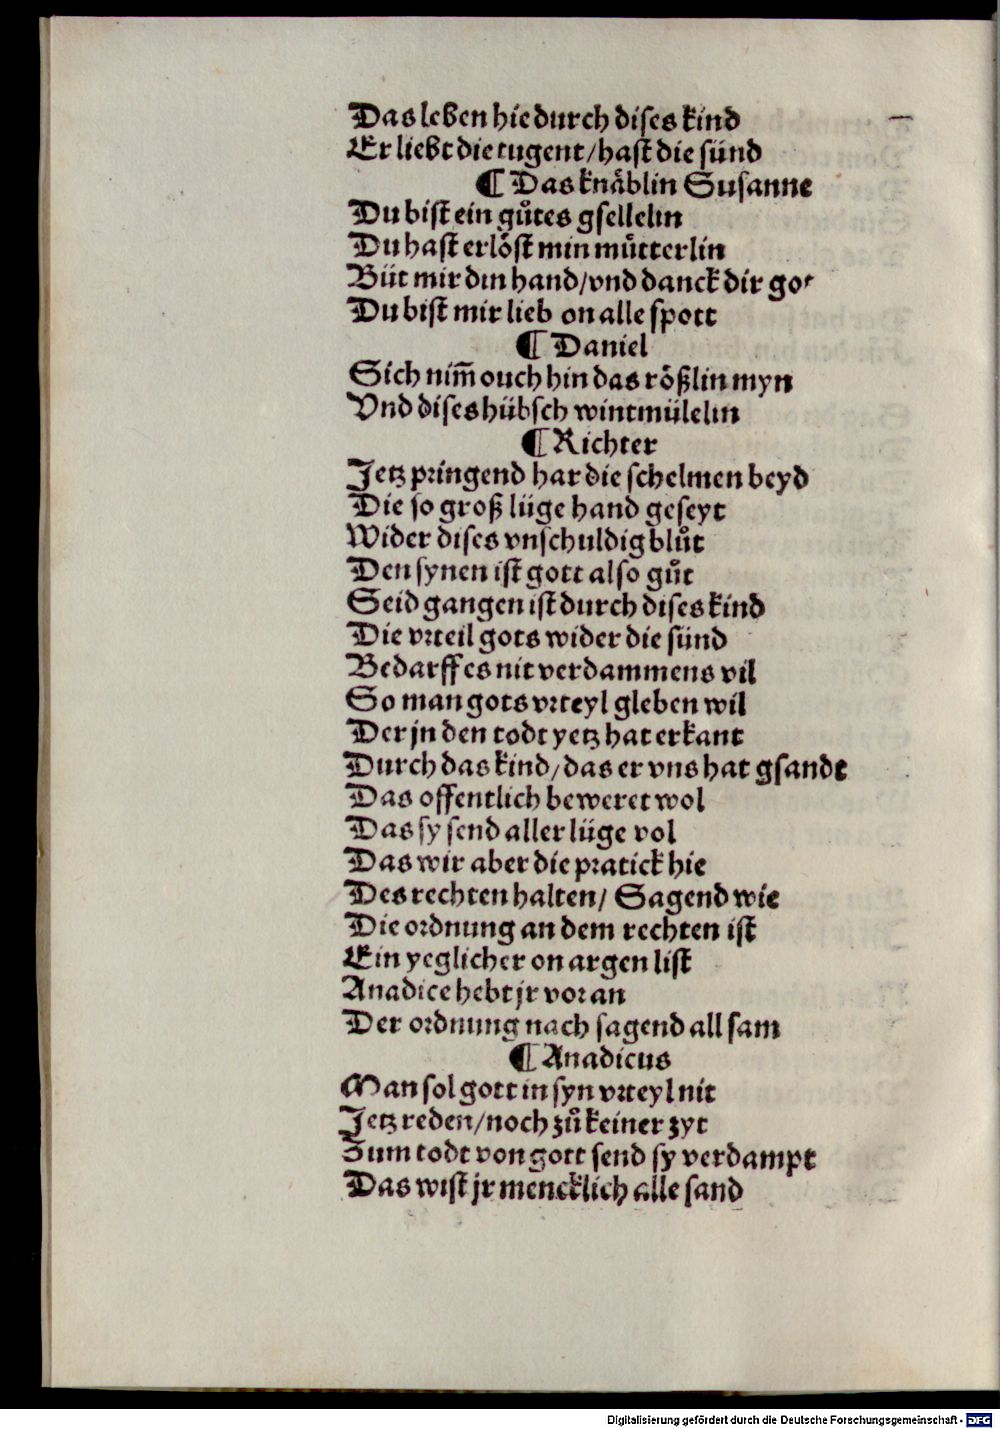 Das leben hie durch dises kind
Er liebt die tugent/hast die sünd
¶ Das knäblin Susanne
Du bist ein gůtes gsellelin
Du hast erlößt min můtterlin
Büt mir din hand/vnd danck dir got
Du bist mir lieb on alle spott
¶ Daniel
Sich nim̅ ouch hin das rößlin myn
Vnd dises hübsch wintmülelin
¶ Richter
Jetz pringend har die schelmen beyd
Die so groß lüge hand geseyt
Wider dises vnschuldig blůt
Den synen ist gott also gůt
Seid gangen ist durch dises kind
Die vrteil gots wider die sünd
Bedarff es nit verdammens vil
So man gots vrteyl gleben wil
Der jn den todt yetz hat erkant
Durch das kind/das er vns hat gsandt
Das offentlich beweret wol
Das sy send aller lüge vol
Das wir aber die pratick hie
Des rechten halten/ Sagend wie
Die ordnung an dem rechten ist
Ein yeglicher on argen list
Anadice hebt jr vor an
Der ordnung nach sagend all sam
¶ Anadicus
Man sol gott in syn vrteyl nit
Jetz reden/noch zů keiner zyt
Zum todt von gott send sy verdampt
Das wist jr mencklich alle sand
Digitalisierung gefördert durch die Deutsche Forschungsgemeinschaft - DFG